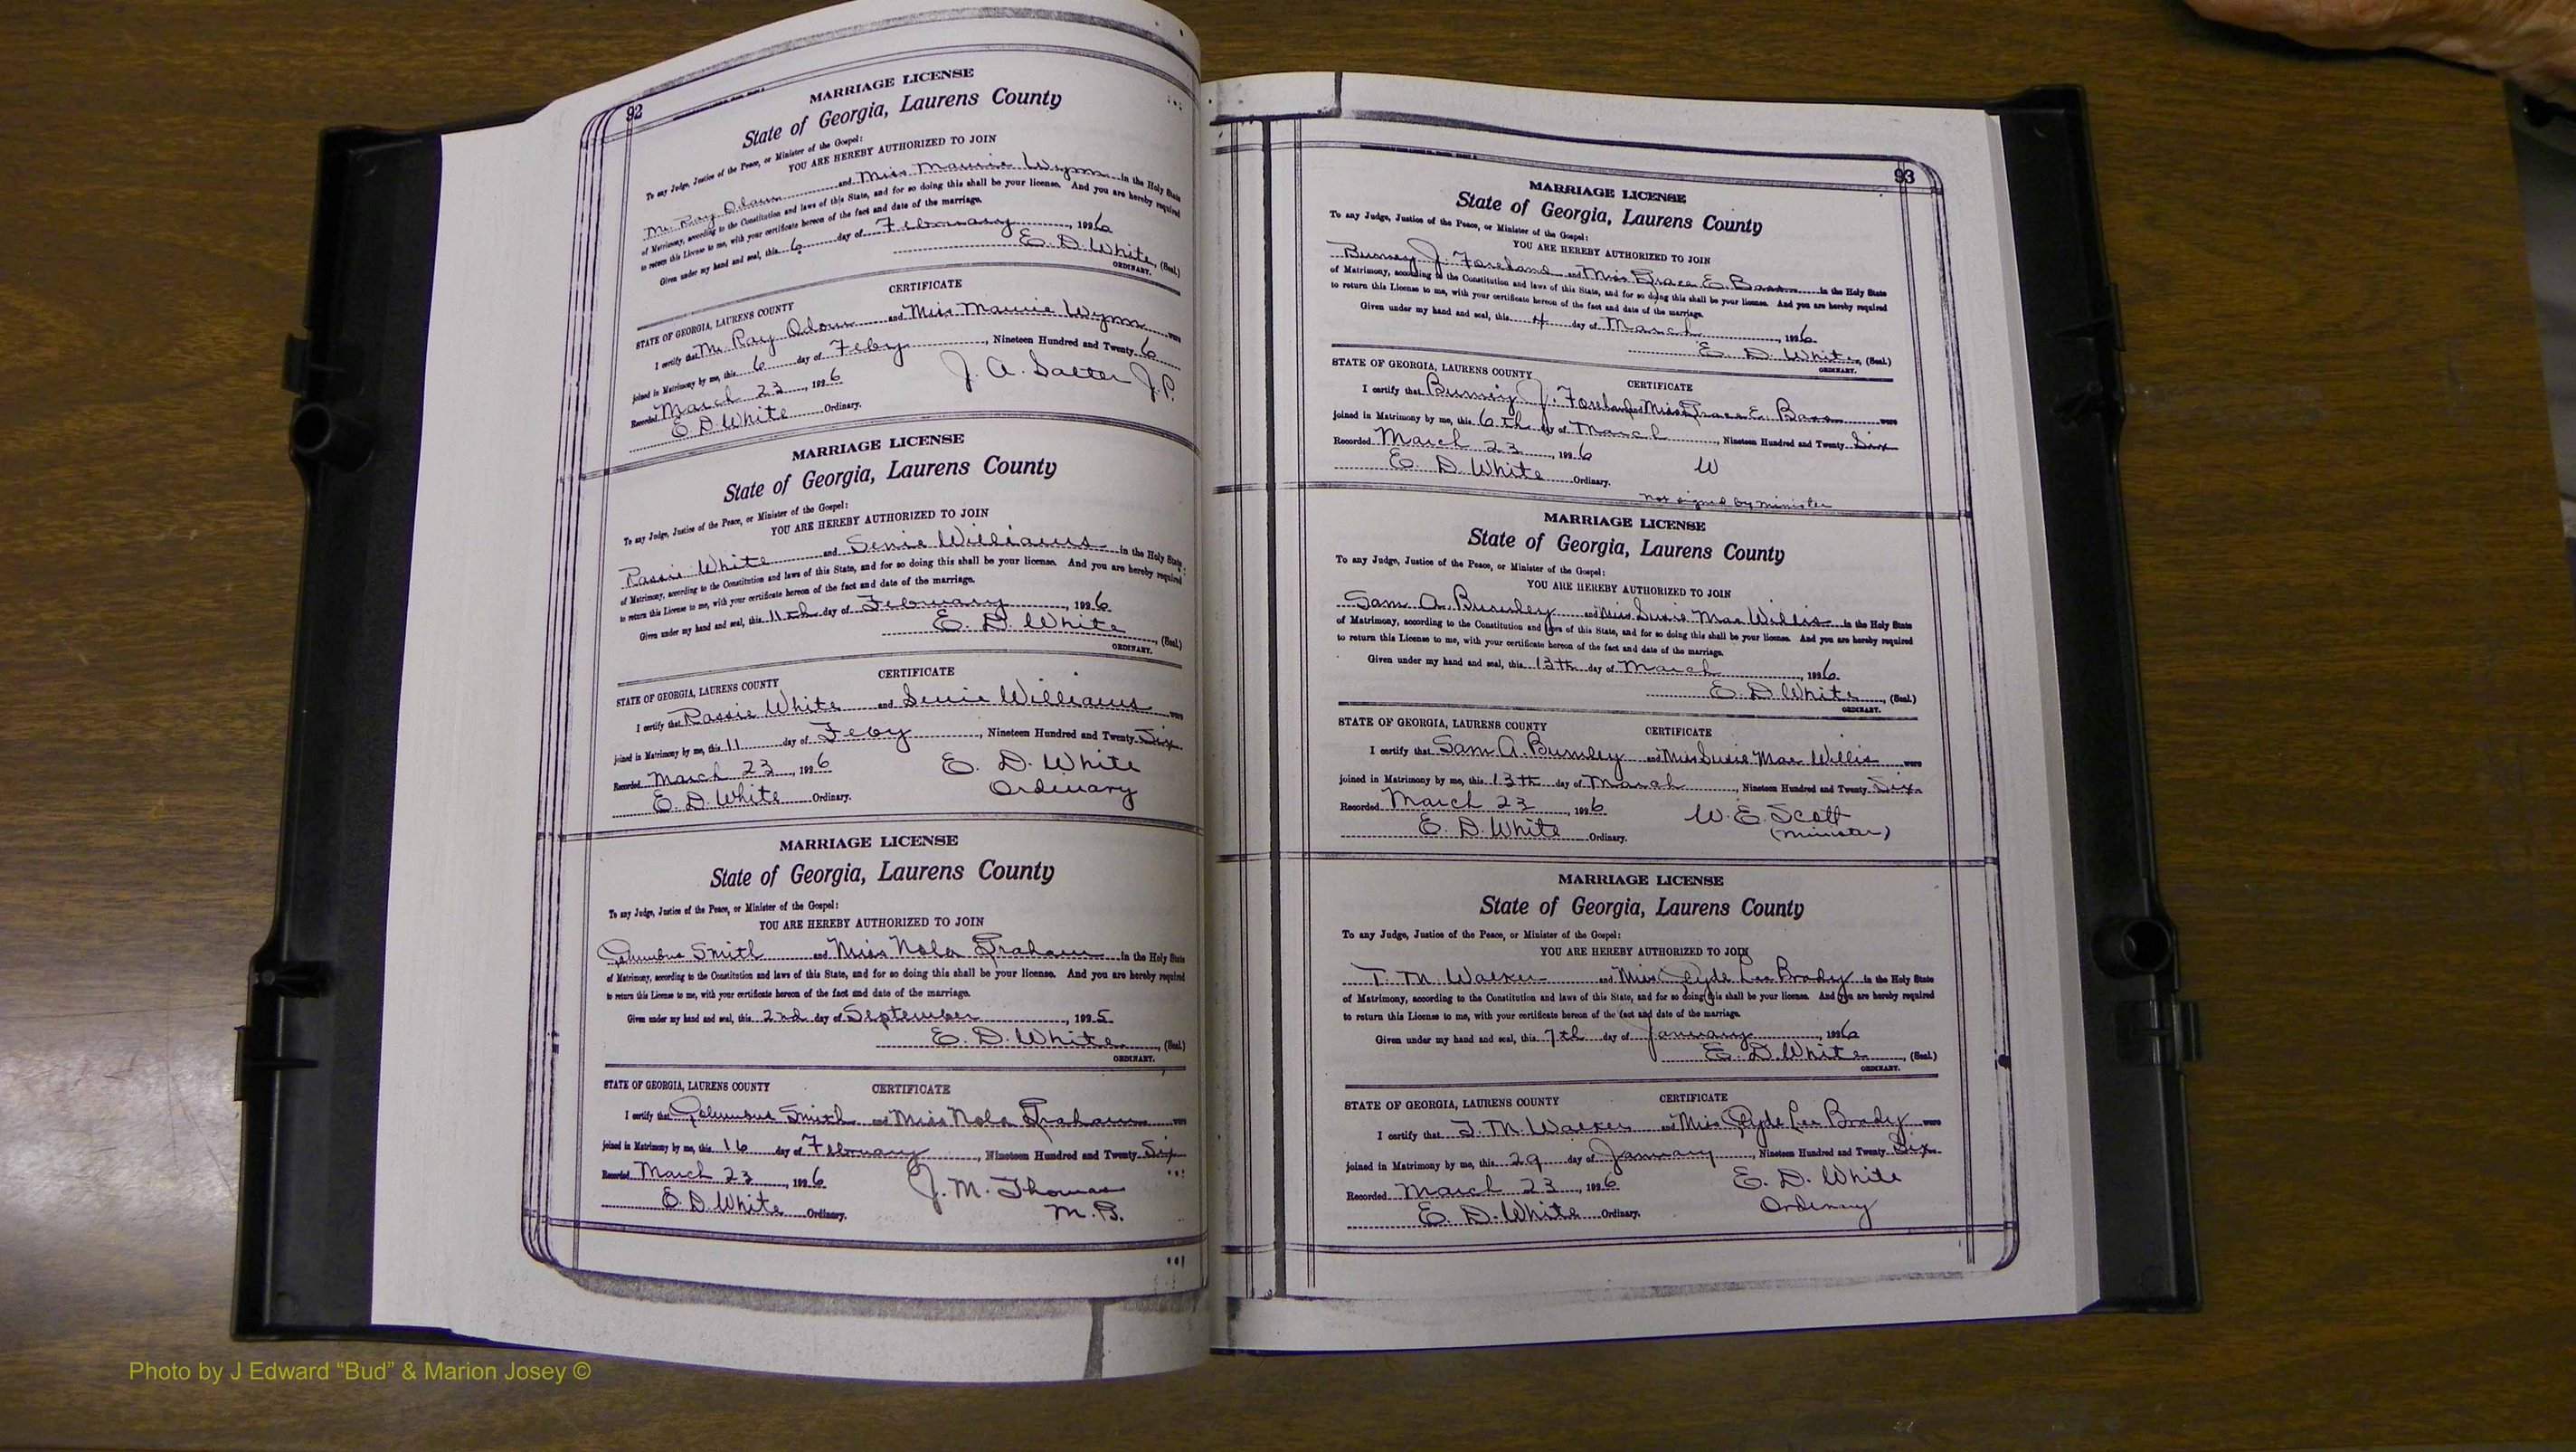 92
MARRIAGE LICENSE
State of Georgia, Laurens County
To any Judge, Justice of the Peace, or Minister of the Gospel:
YOU ARE HEREBY AUTHORIZED TO JOIN
Mr. Ray Odom and Miss Maurie Wynn in the Holy State
of Matrimony, according to the Constitution and laws of this State, and for so doing this shall be your license. And you are hereby required
to return this License to me, with your certificate hereon of the fact and date of the marriage.
Given under my hand and seal, this 6 day of February, 1926
E. D. White, (Seal.)
ORDINARY.
CERTIFICATE
STATE OF GEORGIA, LAURENS COUNTY
I certify that Mr Ray Odom and Miss Maurie Wynn were
joined in Matrimony by me, this 6 day of Feby, Nineteen Hundred and Twenty 6
Recorded March 23, 1926 J. A. Salter J.P.
E. D. White Ordinary.
MARRIAGE LICENSE
State of Georgia, Laurens County
To any Judge, Justice of the Peace, or Minister of the Gospel:
YOU ARE HEREBY AUTHORIZED TO JOIN
Rassie White and Senie Williams in the Holy State
of Matrimony, according to the Constitution and laws of this State, and for so doing this shall be your license. And you are hereby required
to return this License to me, with your certificate hereon of the fact and date of the marriage.
Given under my hand and seal, this 11th day of February, 1926
E. D. White, (Seal.)
ORDINARY.
CERTIFICATE
STATE OF GEORGIA, LAURENS COUNTY
I certify that Rassie White and Senie Williams were
joined in Matrimony by me, this 11 day of Feby, Nineteen Hundred and Twenty Six
Recorded March 23, 1926 E. D. White
E. D. White Ordinary. Ordinary
MARRIAGE LICENSE
State of Georgia, Laurens County
To any Judge, Justice of the Peace, or Minister of the Gospel:
YOU ARE HEREBY AUTHORIZED TO JOIN
Columbus Smith and Miss Nola Graham in the Holy State
of Matrimony, according to the Constitution and laws of this State, and for so doing this shall be your license. And you are hereby required
to return this License to me, with your certificate hereon of the fact and date of the marriage.
Given under my hand and seal, this 2nd day of September, 1925
E. D. White, (Seal.)
ORDINARY.
STATE OF GEORGIA, LAURENS COUNTY CERTIFICATE
I certify that Columbus Smith and Miss Nola Graham were
joined in Matrimony by me, this 16 day of February, Nineteen Hundred and Twenty Six
Recorded March 23, 1926 J. M. Thomas
E. D. White Ordinary. M. G.
93
MARRIAGE LICENSE
State of Georgia, Laurens County
To any Judge, Justice of the Peace, or Minister of the Gospel:
YOU ARE HEREBY AUTHORIZED TO JOIN
Burney J. Foreland and Miss Grace E. Bass in the Holy State
of Matrimony, according to the Constitution and laws of this State, and for so doing this shall be your license. And you are hereby required
to return this License to me, with your certificate hereon of the fact and date of the marriage.
Given under my hand and seal, this 4 day of March, 1926
E. D. White, (Seal.)
ORDINARY.
STATE OF GEORGIA, LAURENS COUNTY CERTIFICATE
I certify that Burney J. Foreland and Miss Grace E. Bass were
joined in Matrimony by me, this 6th day of March, Nineteen Hundred and Twenty Six
Recorded March 23, 1926 W
E. D. White Ordinary.
not signed by minister
MARRIAGE LICENSE
State of Georgia, Laurens County
To any Judge, Justice of the Peace, or Minister of the Gospel:
YOU ARE HEREBY AUTHORIZED TO JOIN
Sam A. Burnley and Miss Susie Mae Willis in the Holy State
of Matrimony, according to the Constitution and laws of this State, and for so doing this shall be your license. And you are hereby required
to return this License to me, with your certificate hereon of the fact and date of the marriage.
Given under my hand and seal, this 13th day of March, 1926
E. D. White, (Seal.)
ORDINARY.
STATE OF GEORGIA, LAURENS COUNTY CERTIFICATE
I certify that Sam A. Burnley and Miss Susie Mae Willis were
joined in Matrimony by me, this 13th day of March, Nineteen Hundred and Twenty Six
Recorded March 23, 1926 W. E. Scott
E. D. White Ordinary. (Minister)
MARRIAGE LICENSE
State of Georgia, Laurens County
To any Judge, Justice of the Peace, or Minister of the Gospel:
YOU ARE HEREBY AUTHORIZED TO JOIN
T. M. Walker and Miss Clyde Lee Brady in the Holy State
of Matrimony, according to the Constitution and laws of this State, and for so doing this shall be your license. And you are hereby required
to return this License to me, with your certificate hereon of the fact and date of the marriage.
Given under my hand and seal, this 7th day of January, 1926
E. D. White, (Seal.)
ORDINARY.
STATE OF GEORGIA, LAURENS COUNTY CERTIFICATE
I certify that T. M. Walker and Miss Clyde Lee Brady were
joined in Matrimony by me, this 29 day of January, Nineteen Hundred and Twenty Six
Recorded March 23, 1926 E. D. White
E. D. White Ordinary. Ordinary
Photo by J Edward “Bud” & Marion Josey ©